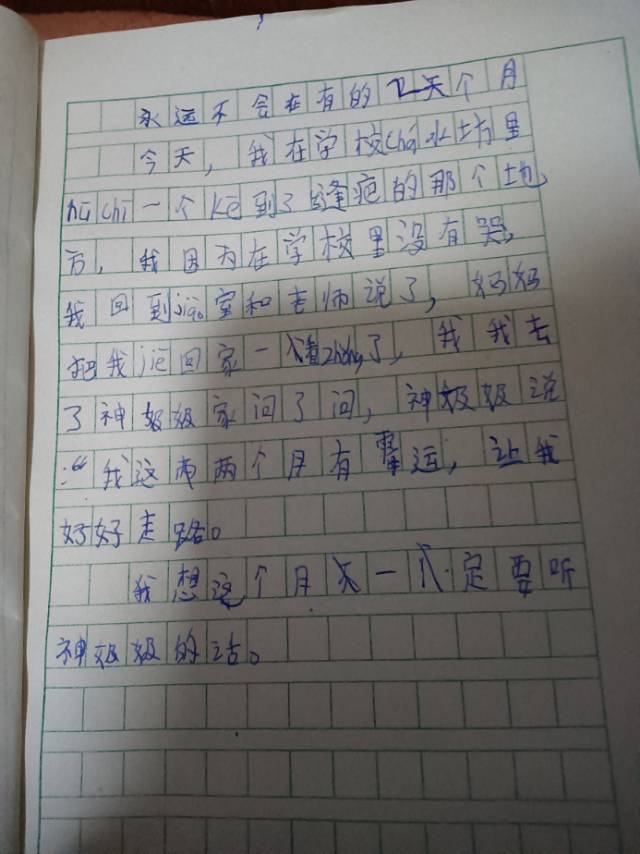 永远不会在有的天个月
今天，我在学校chá水坊里
一个kē到了缝疤的那个地
方，我因为在学校里没有哭，
我回到jiào室和老师说了，妈妈
把我jiē回家一看zhǒng了，我我去
了神奶奶家问了问，神奶奶说
：“我这两个月有霉运，让我
好好走路。
我想这个月天一定要听
神奶奶的话。